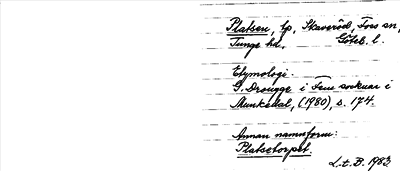 Platsen, tp, Skaveröd, Foss sn,
Tunge hd, Göteb. l.
Etymologi:
G. Drougge i Fem socknar i
Munkedal, (1980), s. 174.
Annan namnform:
Platsetorpet.
L.t.B. 1983